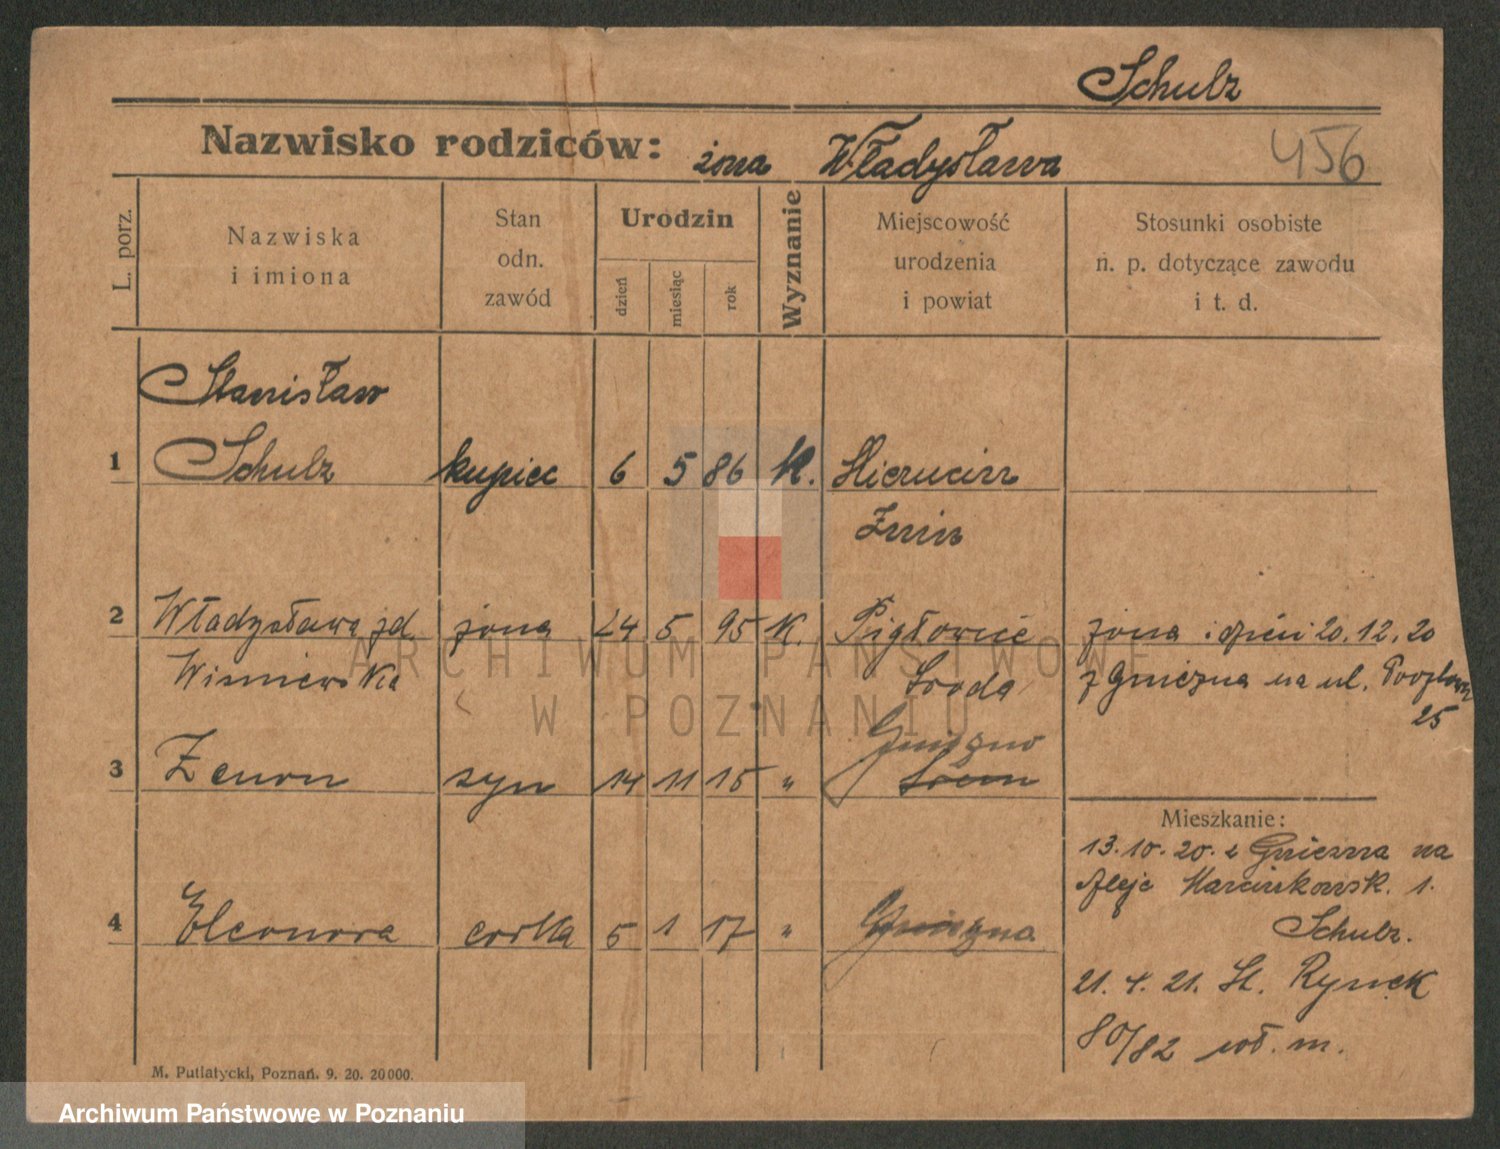 Schulz
Nazwisko rodziców: żona Władysława
456
L. porz.
Nazwiska
i imiona
Stan
odn.
zawód
Urodzin
dzień
miesiąc
rok
Wyznanie
Miejscowość
urodzenia
i powiat
Stosunki osobiste
n. p. dotyczące zawodu
i t. d.
Stanisław
1 Schulz kupiec 6 5 86 K.
Żnin
2 Władysława żona 24 5 95 K. Pigłowice żona i dzieci 20.12.20
Wiśniewska Środa z Gniezna na ul.
25
Gniezno
3 Zenon syn 14 11 15 " Śrem
Mieszkanie:
13.10.20. z Gniezna na
Aleje Marcinkowsk. 1.
4 Eleonora córka 5 1 17 " Gniezna
Schulz.
21.4.21. St. Rynek
80/82 wł. m.
M. Putiatycki, Poznań. 9. 20. 20000.
ARCHIWUM PAŃSTWOWE
W POZNANIU
Archiwum Państwowe w Poznaniu